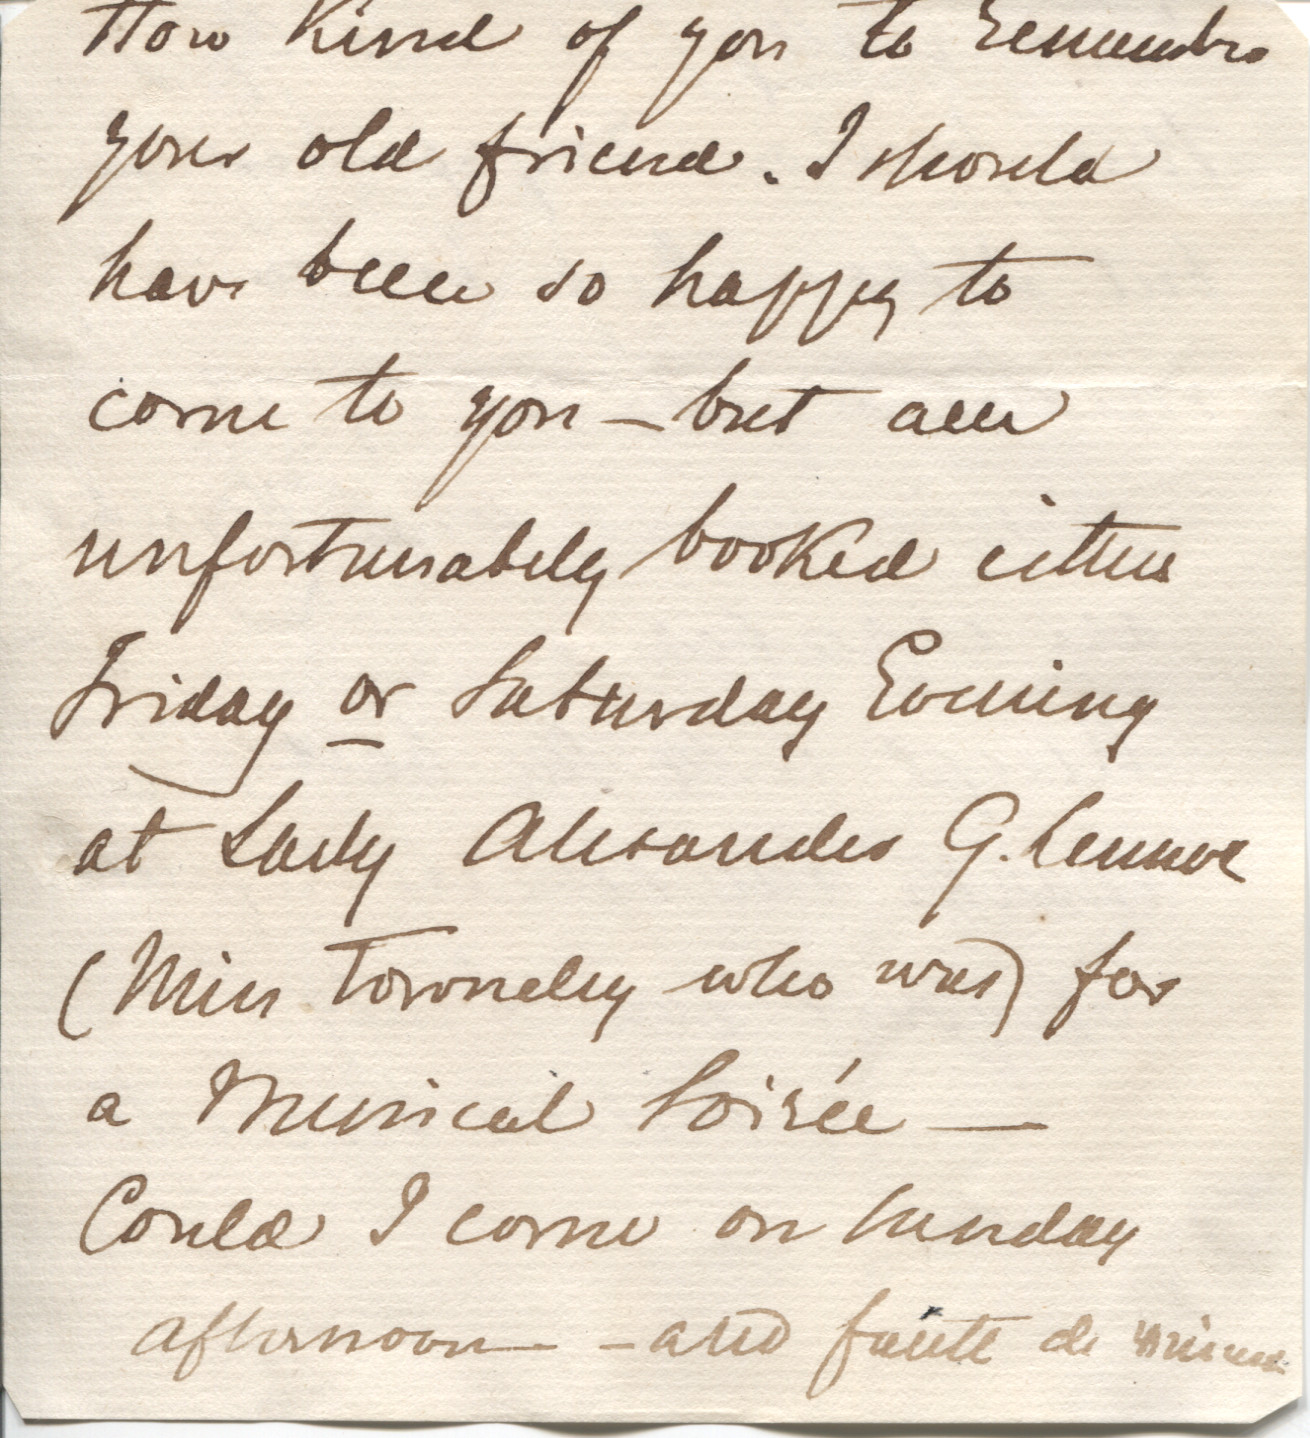 How kind of you to remember
your old friend. I should
have been so happy to
come to you – but am
unfortunately booked either
Friday or Saturday Evening
at Lady Alexander G. Lennox
(Miss Towneley who was) for
a Musical Soirée —
Could I come on Sunday
afternoon – and faute de mieux